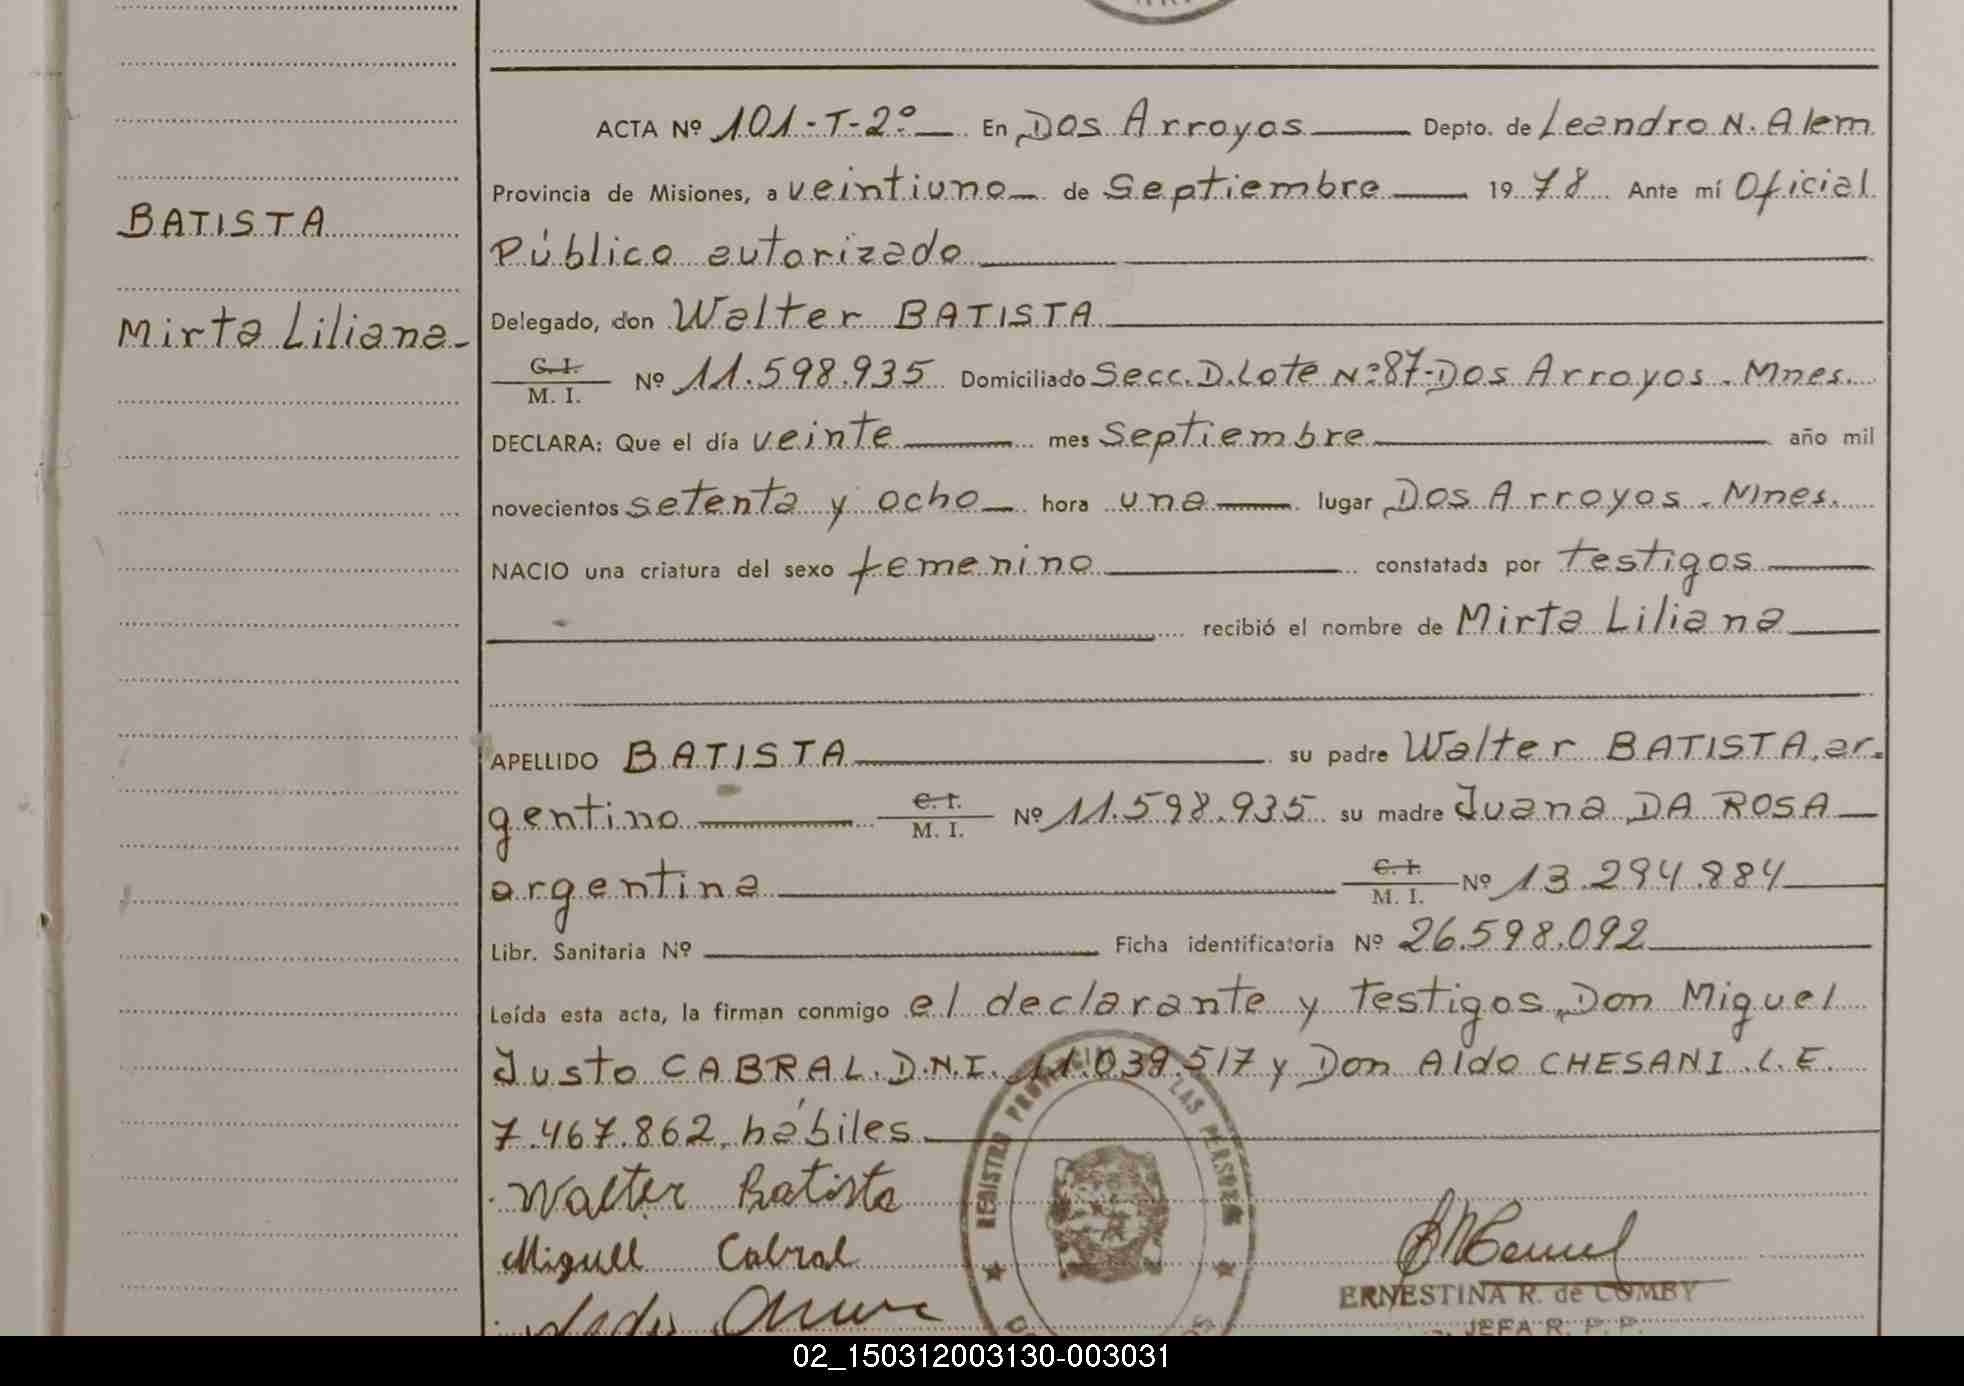 ACTA Nº 101-T-2º En Dos Arroyos Depto. de Leandro N. Alem
Provincia de Misiones, a veintiuno de Septiembre 1978 Ante mí Oficial
Público autorizado
BATISTA
Mirta Liliana-
Delegado, don Walter BATISTA
C. I.
M. I. Nº 11.598.935 Domiciliado Secc. D. Lote Nº 87-Dos Arroyos. Mnes.
DECLARA: Que el día veinte mes Septiembre año mil
novecientos setenta y ocho hora una lugar Dos Arroyos. Mnes.
NACIO una criatura del sexo femenino constatada por testigos
recibió el nombre de Mirta Liliana
APELLIDO BATISTA su padre Walter BATISTA, ar-
gentino C. I. M. I. Nº 11.598.935 su madre Juana DA ROSA
argentina C. I. M. I. Nº 13.294.884
Libr. Sanitaria Nº Ficha identificatoria Nº 26.598.092
Leída esta acta, la firman conmigo el declarante y testigos, Don Miguel
Justo CABRAL. D.N.I. 11.039.517 y Don Aldo CHESANI. L.E.
7.467.862, hábiles
Walter Batista
Miguel Cabral
REGISTRO PROVINCIAL LAS PERSONAS
ERNESTINA R. de COMBY
JEFA R. P. P.
02_150312003130-003031